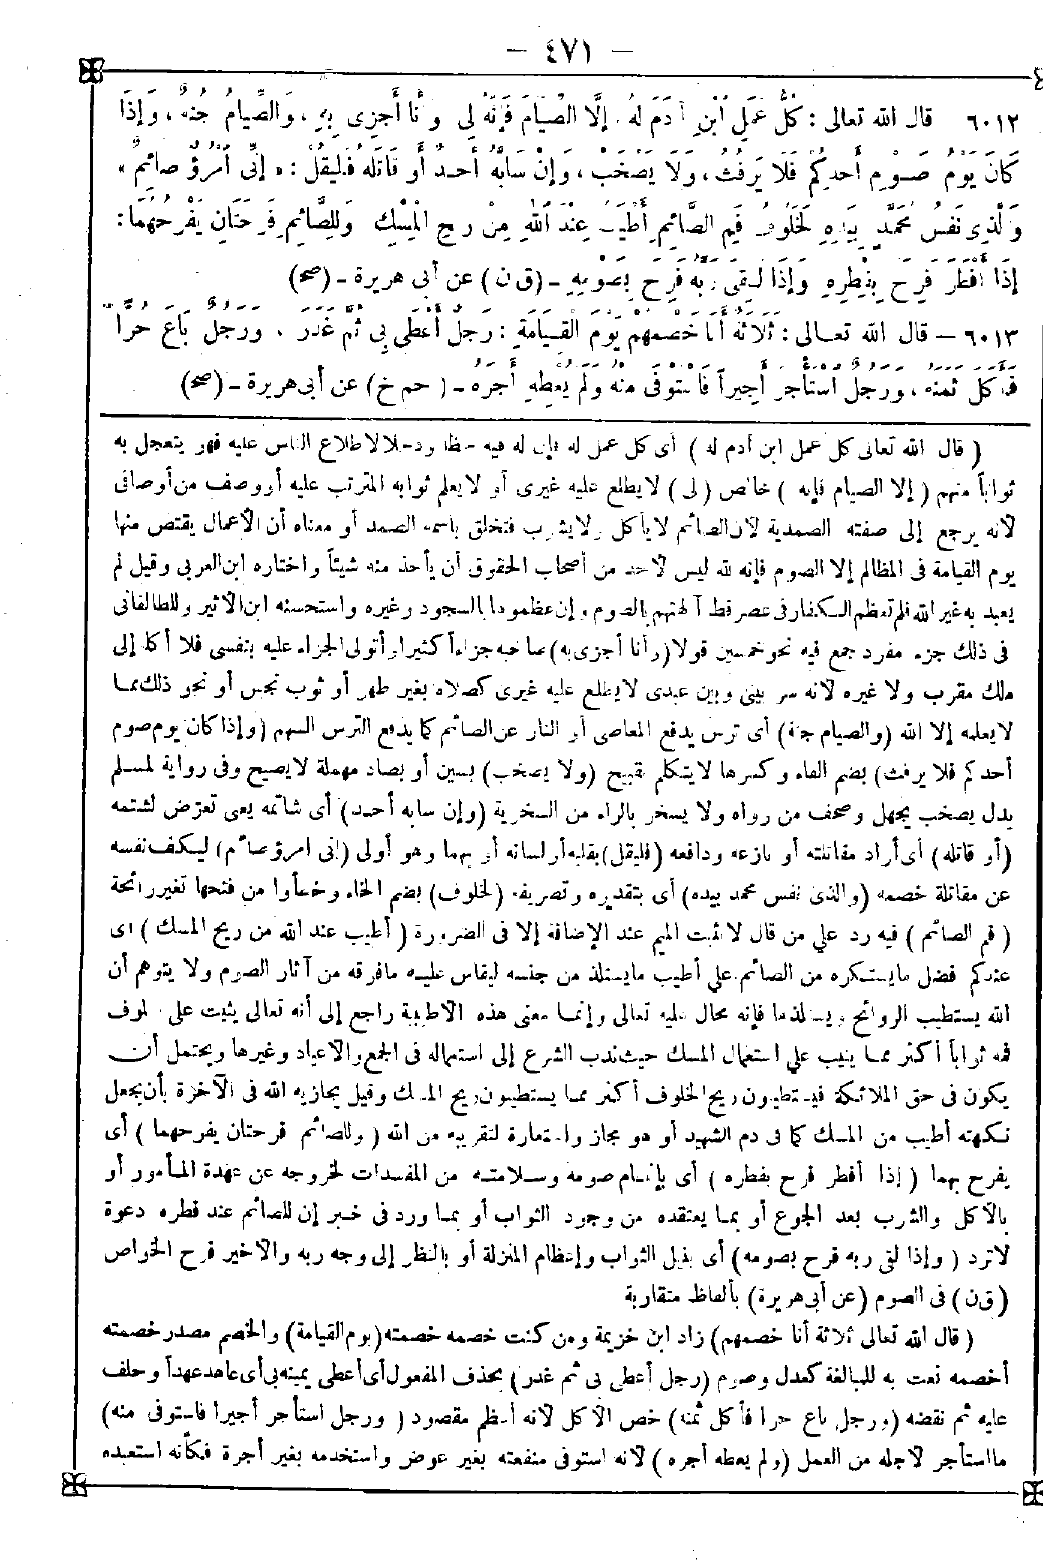 — ٤٧١ —
٦٠١٢ قال الله تعالى : كُلُّ عَمَلِ ابْنِ آدَمَ لَهُ ، إِلَّا الصِّيَامَ فَإِنَّهُ لِي وَأَنَا أَجْزِى بِهِ ، وَالصِّيَامُ جُنَّةٌ ، وَإِذَا
كَانَ يَوْمُ صَوْمِ أَحَدِكُمْ فَلَا يَرْفُثْ ، وَلَا يَصْخَبْ ، وَإِنْ سَابَّهُ أَحَدٌ أَوْ قَاتَلَهُ فَلْيَقُلْ : « إِنِّى امْرُؤٌ صَائِمٌ »
وَالَّذِى نَفْسُ مُحَمَّدٍ بِيَدِهِ لَخَلُوفُ فَمِ الصَّائِمِ أَطْيَبُ عِنْدَ اللهِ مِنْ رِيحِ الْمِسْكِ وَلِلصَّائِمِ فَرْحَتَانِ يَفْرَحُهُمَا :
إِذَا أَفْطَرَ فَرِحَ بِفِطْرِهِ وَإِذَا لَقِىَ رَبَّهُ فَرِحَ بِصَوْمِهِ ـ (ق ن) عن أبى هريرة ـ (صح)
٦٠١٣ — قال الله تعالى : ثَلَاثَةٌ أَنَا خَصْمُهُمْ يَوْمَ الْقِيَامَةِ : رَجُلٌ أَعْطَى بِى ثُمَّ غَدَرَ ، وَرَجُلٌ بَاعَ حُرًّا
فَأَكَلَ ثَمَنَهُ ، وَرَجُلٌ اسْتَأْجَرَ أَجِيراً فَاسْتَوْفَى مِنْهُ وَلَمْ يُعْطِهِ أَجْرَهُ ـ ( حم خ) عن أبى هريرة ـ (صح)
( قال الله تعالى كل عمل ابن آدم له ) أى كل عمل له فإن له فيه حظا ودخلا لاطلاع الناس عليه فهو يتعجل به
ثواباً منهم ( إلا الصيام فإنه ) خالص (لى) لا يطلع عليه غيرى أو لا يعلم ثوابه المترتب عليه أو وصف من أوصافى
لأنه يرجع إلى صفته الصمدية لأن الصائم لا يأكل ولا يشرب فتخلق باسمه الصمد أو معناه أن الأعمال يقتص منها
يوم القيامة فى المظالم إلا الصوم فإنه لله ليس لأحد من أصحاب الحقوق أن يأخذ منه شيئاً واختاره ابن العربى وقيل لم
يعبد به غير الله فلم تعظم الكفار فى عصر قط آلهتهم بالصوم وإن عظموها بالسجود وغيره واستحسنه ابن الأثير وللطالقانى
فى ذلك جزء مفرد جمع فيه نحو خمسين قولا (وأنا أجزى به) صاحبه جزاءاً كثيرا وأتولى الجزاء عليه بنفسى فلا أكله إلى
ملك مقرب ولا غيره لأنه سر بينى وبين عبدى لا يطلع عليه غيرى كصلاه بغير طهر أو ثوب نجس أو نحو ذلك مما
لا يعلمه إلا الله (والصيام جنة) أى ترس يدفع المعاصى أو النار عن الصائم كما يدفع الترس السهم (وإذا كان يوم صوم
أحدكم فلا يرفث) بضم الفاء وكسرها لا يتكلم بقبيح (ولا يصخب) بسين أو بصاد مهملة لا يصيح وفى رواية لمسلم
بدل يصخب يجهل وصحف من رواه ولا يسخر بالراء من السخرية (وإن سابه أحد) أى شاتمه يعنى تعرض لشتمه
(أو قاتله) أى أراد مقاتلته أو نازعه ودافعه (فليقل) بقلبه أو لسانه أو بهما وهو أولى (إنى امرؤ صائم) ليكف نفسه
عن مقاتلة خصمه (والذى نفس محمد بيده) أى بتقديره وتصريفه (لخلوف) بضم الخاء وخطأوا من فتحها تغير رائحة
( فم الصائم ) فيه رد على من قال لا تثبت الميم عند الإضافة إلا فى الضرورة ( أطيب عند الله من ريح المسك ) أى
عندكم فضل ما يستكره من الصائم على أطيب ما يستلذ من جنسه ليقاس عليه ما فوقه من آثار الصوم ولا يتوهم أن
الله يستطيب الروائح ويستلذها فإنه محال عليه تعالى وإنما معنى هذه الأطيبية راجع إلى أنه تعالى يثيب على خلوف
فمه ثواباً أكثر مما يثيب على استعمال المسك حيث ندب الشرع إلى استعماله فى الجمع والأعياد وغيرها ويحتمل أن
يكون فى حق الملائكة فيستطيبون ريح الخلوف أكثر مما يستطيبون ريح المسك وقيل يجازيه الله فى الآخرة بأن يجعل
نكهته أطيب من المسك كما فى دم الشهيد أو هو مجاز واستعارة لتقريبه من الله ( وللصائم فرحتان يفرحهما ) أى
يفرح بهما ( إذا أفطر فرح بفطره ) أى بإتمام صومه وسلامته من المفسدات لخروجه عن عهدة المأمور أو
بالأكل والشرب بعد الجوع أو بما يعتقده من وجود الثواب أو بما ورد فى خبر إن للصائم عند فطره دعوة
لا ترد ( وإذا لقى ربه فرح بصومه) أى بنيل الثواب وإعظام المنزلة أو بالنظر إلى وجه ربه والأخير فرح الخواص
(ق ن) فى الصوم (عن أبى هريرة) بألفاظ متقاربة
( قال الله تعالى ثلاثة أنا خصمهم) زاد ابن خزيمة ومن كنت خصمه خصمته (يوم القيامة) والخصم مصدر خصمته
أخصمه نعت به للمبالغة كعدل وصوم (رجل أعطى بى ثم غدر) بحذف المفعول أى أعطى يمينه بى أى عاهد عهداً وحلف
عليه ثم نقضه (ورجل باع حرا فأكل ثمنه) خص الأكل لأنه أعظم مقصود ( ورجل استأجر أجيرا فاستوفى منه)
ما استأجر لأجله من العمل (ولم يعطه أجره ) لأنه استوفى منفعته بغير عوض واستخدمه بغير أجرة فكأنه استعبده